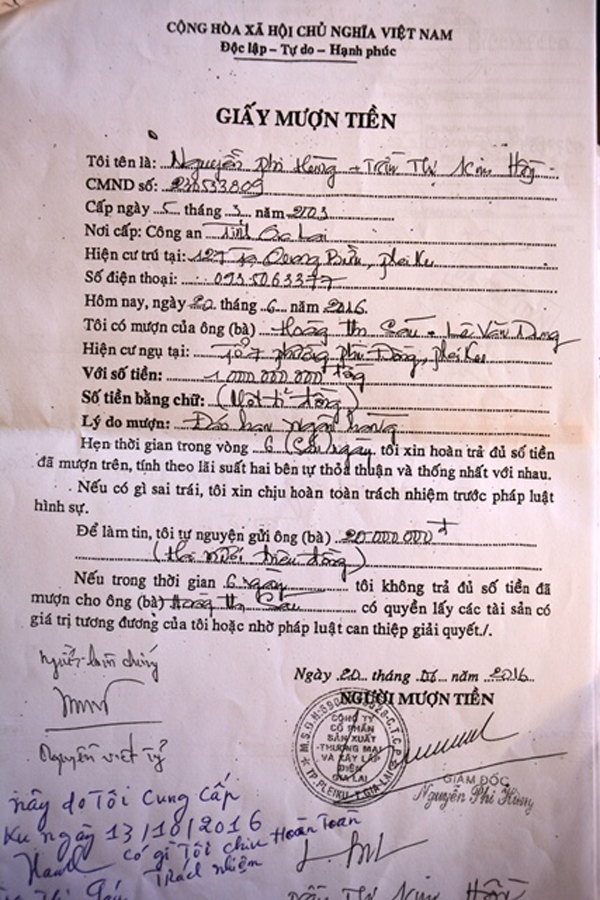 CỘNG HÒA XÃ HỘI CHỦ NGHĨA VIỆT NAM
Độc lập – Tự do – Hạnh phúc
GIẤY MƯỢN TIỀN
Tôi tên là: Nguyễn Phi Hùng + Trần Thị Kim
CMND số:
Cấp ngày 5 tháng 3 năm 2003
Nơi cấp: Công an Tỉnh Gia Lai
Hiện cư trú tại: 127 Quang, Pleiku
Số điện thoại: 0935063377
Hôm nay, ngày 20 tháng 6 năm 2016.
Tôi có mượn của ông (bà) Hoàng Thị Sáu + Lê Văn Dung
Hiện cư ngụ tại: Tổ 7 phường Phù Đổng, Pleiku
Với số tiền: 1.000.000.000 đồng
Số tiền bằng chữ: (Một tỉ đồng)
Lý do mượn: Đáo hạn ngân hàng
Hẹn thời gian trong vòng 6 (Sáu) ngày tôi xin hoàn trả đủ số tiền
đã mượn trên, tính theo lãi suất hai bên tự thỏa thuận và thống nhất với nhau.
Nếu có gì sai trái, tôi xin chịu hoàn toàn trách nhiệm trước pháp luật
hình sự.
Để làm tin, tôi tự nguyện gửi ông (bà) 20.000.000đ
(Hai mươi triệu đồng)
Nếu trong thời gian 6 ngày tôi không trả đủ số tiền đã
mượn cho ông (bà) Hoàng Thị Sáu có quyền lấy các tài sản có
giá trị tương đương của tôi hoặc nhờ pháp luật can thiệp giải quyết./.
Người làm chứng
Nguyễn Viết Tỷ
Ngày 20 tháng 06 năm 2016
NGƯỜI MƯỢN TIỀN
CÔNG TY
CỔ PHẦN
SẢN XUẤT
THƯƠNG MẠI
VÀ XÂY LẮP
ĐIỆN
GIA LAI
TP. PLEIKU - T. GIA LAI
GIÁM ĐỐC
Nguyễn Phi Hùng
này do Tôi Cung Cấp
Ku ngày 13/10/2016
có gì Tôi chịu Hoàn Toàn
Trách nhiệm
Trần Thị Kim